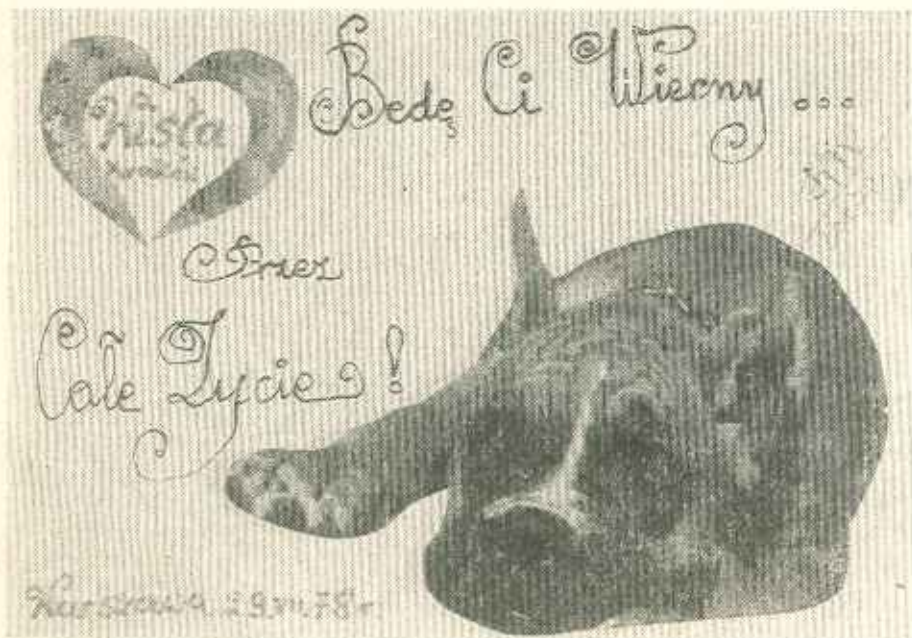 Będę Ci Wierny ...
Przez
Całe Życie!
Warszawa, 29.VII.78 r.